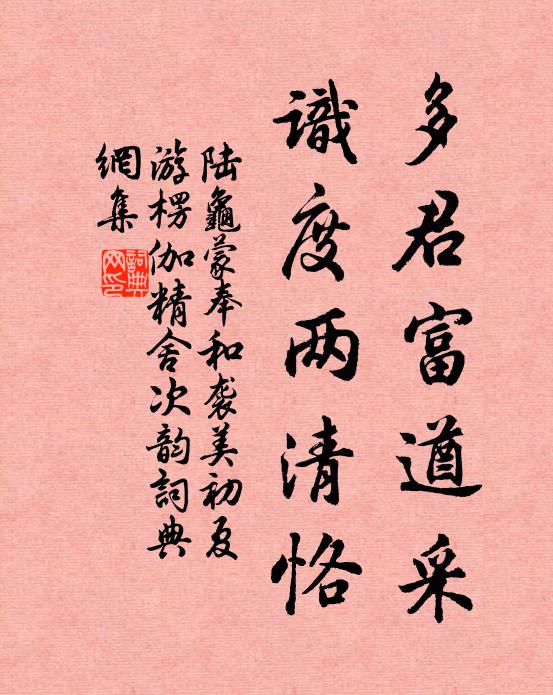 多君富遒采
識度两清恪
陆龜蒙奉和袭美初夏
游楞伽精舍次韵詞典
網集
詞典
网印